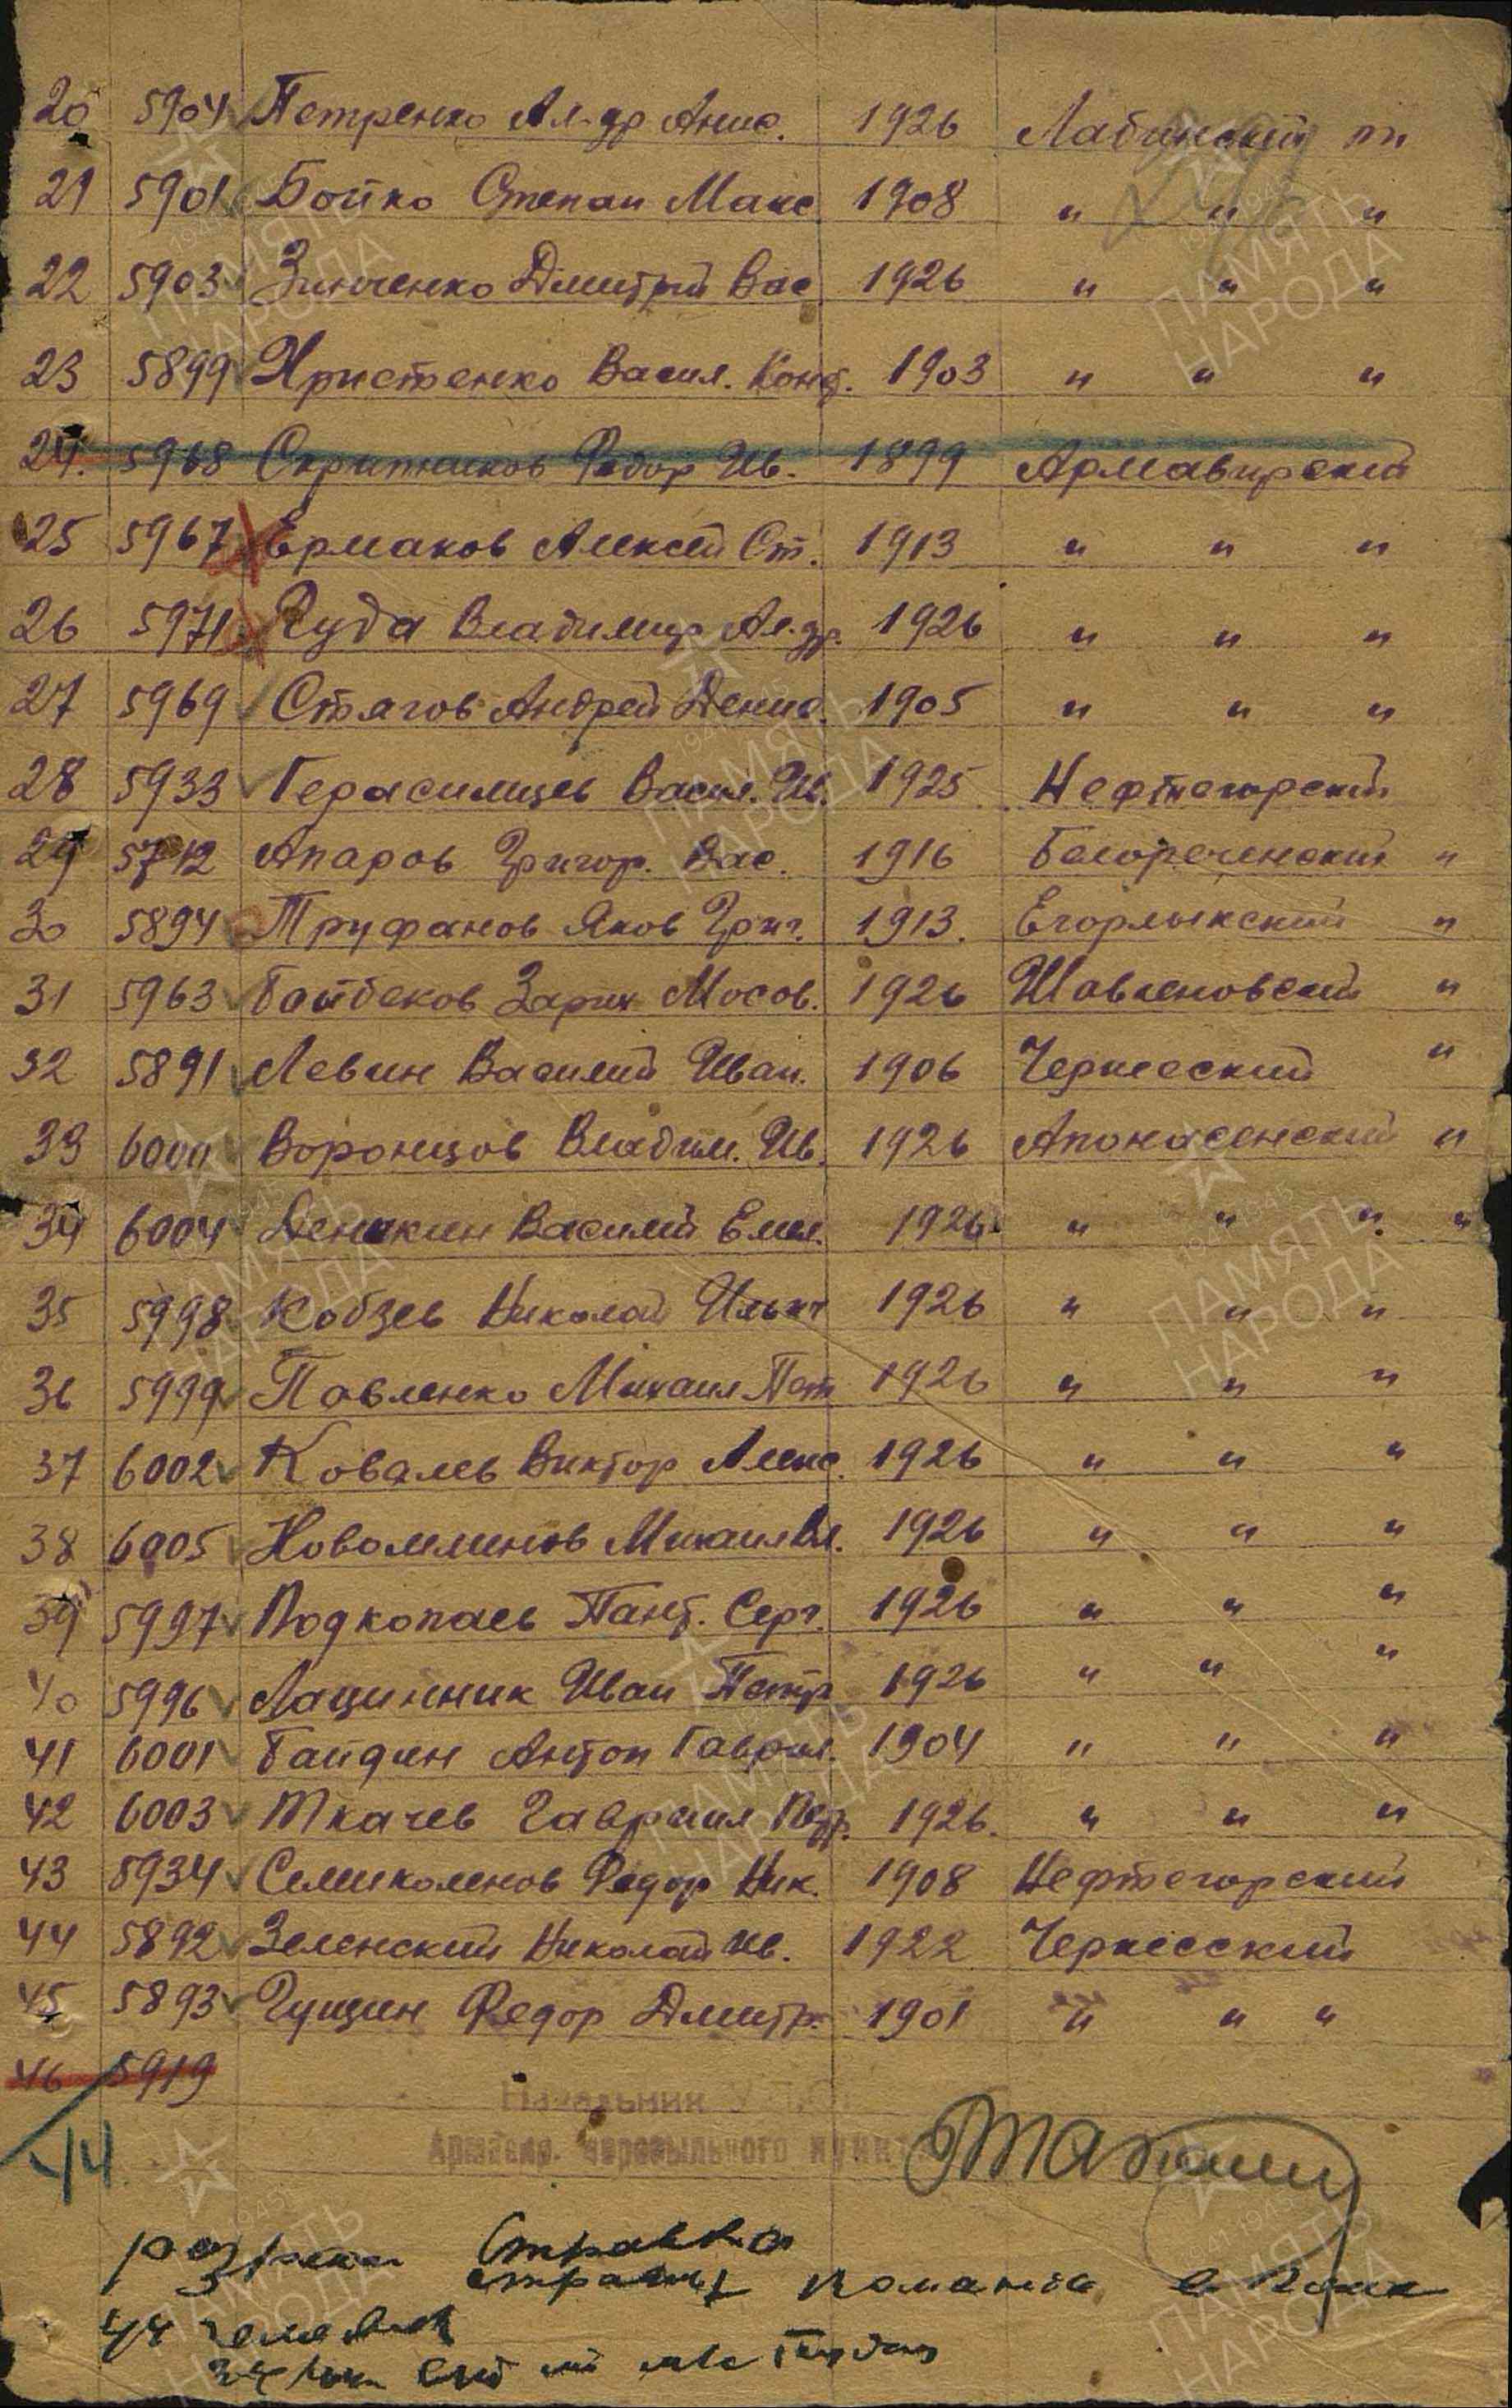 20 5904 Петренко Ал-др Анис. 1926 Лабинский
21 5901 Бойко Степан Макс 1908 " " "
22 5903 Зинченко Дмитрий Вас 1926 " " "
23 5899 Христенко Васил. Конд. 1903 " " "
24. 5968 Скрытников Федор Ив. 1899 Армавирский
25 5967 Ермаков Алексей Ст. 1913 " " "
26 5971 Гуда Владимир Ал.др. 1926 " " "
27 5969 Стягов Андрей Денис. 1905 " " "
28 5933 Герасимцев Васил. Ив. 1925 Нефтегорский
29 5712 Апаров Григор. Вас. 1916 Белореченский "
30 5894 Труфанов Яков Григ. 1913. Егорлыкский "
31 5963 Байбеков 1926 Шавгеновский "
32 5891 Левин Василий Иван. 1906 Черкесский "
33 Воронцов Владим. Ив. 1926 Апонасенский "
34 6004 Деникин Василий Емел. 1926 " " " "
35 5998 Кобзев Николай Ильич 1926 " " "
36 5999 Павленко Михаил Пет 1926 " " "
37 6002 Ковалев Виктор Алекс. 1926 " " "
38 6005 Михаил 1926 " " "
39 5997 Подкопаев Пант. Серг. 1926 " " "
40 5996 Лащинник Иван Петр 1926 " " "
41 6001 Байдин Антон Гаврил. 1904 " " "
42 6003 Ткачев Гавриил Петр. 1926. " " "
43 5934 Семиколенов Федор Ник. 1908 Нефтегорский
44 5892 Зеленский Николай Ив. 1922 Черкесский
45 5893 Гущин Федор Дмитр. 1901 " " "
46 5919
Начальник
Армавир. пересыльного пункта
44
44 человек
ПАМЯТЬ НАРОДА
1945